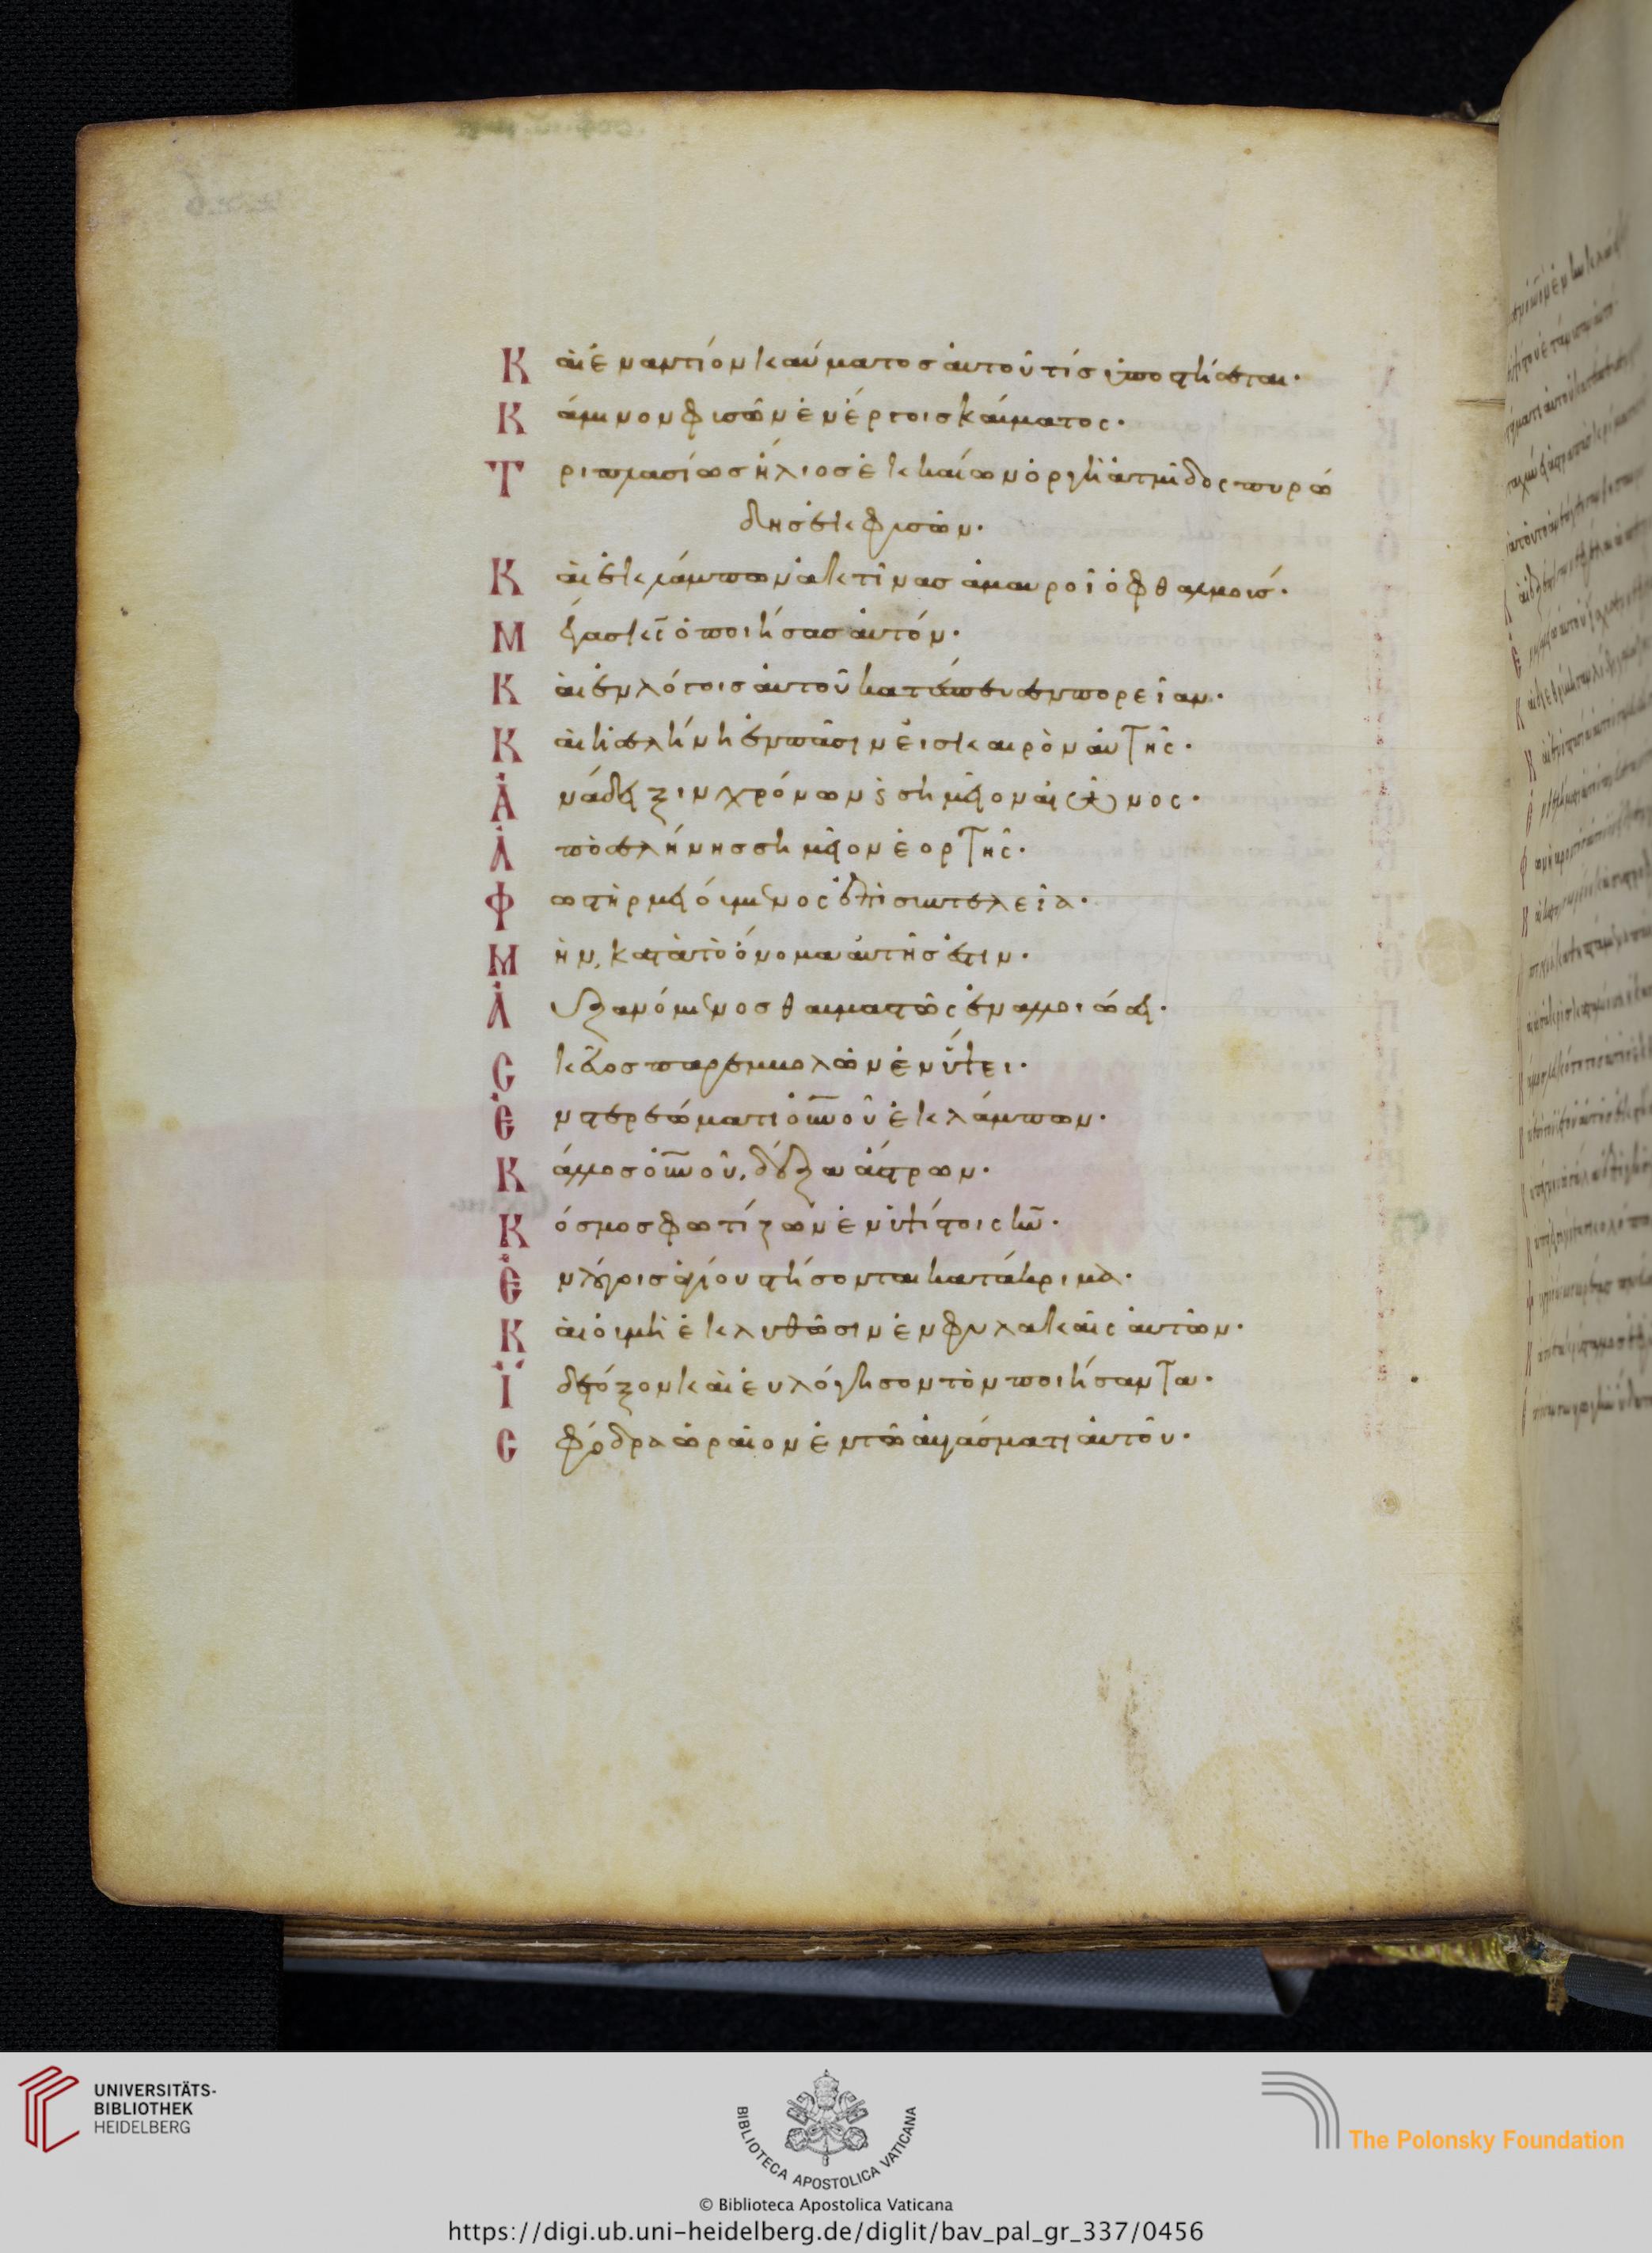 Καὶ ἐναντίον καύματος αὐτοῦ τίς ὑποστήσεται·
Κάμινον φυσῶν ἐν ἔργοις καύματος·
Τριπλασίως ἥλιος ἐκκαίων ὄρη ἀτμίδας πυρώ
δης ἐκφυσῶν·
Καὶ ἐκλάμπων ἀκτῖνας ἀμαυροῖ ὀφθαλμούς·
Μέγας κς̅ ὁ ποιήσας αὐτόν·
Καὶ ἐν λόγοις αὐτοῦ κατέπευσεν πορείαν·
Καὶ ἡ σελήνη ἐν πᾶσιν εἰς καιρὸν αὐτῆς·
Ἀνάδειξιν χρόνων ϛ σημεῖον αἰῶνος·
Ἀπὸ σελήνης σημεῖον ἑορτῆς·
Φωστὴρ μειούμενος ἐπὶ συντελείᾳ·
Μὴν, κατὰ τὸ ὄνομα αὐτῆς ἐστιν·
Αὐξανόμενος θαυμαστῶς ἐν ἀλλοιώσει·
Σκεῦος παρεμβολῶν ἐν ὕψει·
Ἐν στερεώματι οὐ̅νοῦ ἐκλάμπων·
Κάλλος οὐ̅νοῦ, δόξα ἄστρων·
Κόσμος φωτίζων ἐν ὑψίστοις κω̅·
Ἐν λόγοις ἁγίου στήσονται κατὰ κρίμα·
Καὶ οὐ μὴ ἐκλυθῶσιν ἐν φυλακαῖς αὐτῶν·
Ἴδε τόξον καὶ εὐλόγησον τὸν ποιήσαντα·
Σφόδρα ὡραῖον ἐν τῷ αὐγάσματι αὐτοῦ·
UNIVERSITÄTS-
BIBLIOTHEK
HEIDELBERG
BIBLIOTECA APOSTOLICA VATICANA
The Polonsky Foundation
© Biblioteca Apostolica Vaticana
https://digi.ub.uni-heidelberg.de/diglit/bav_pal_gr_337/0456